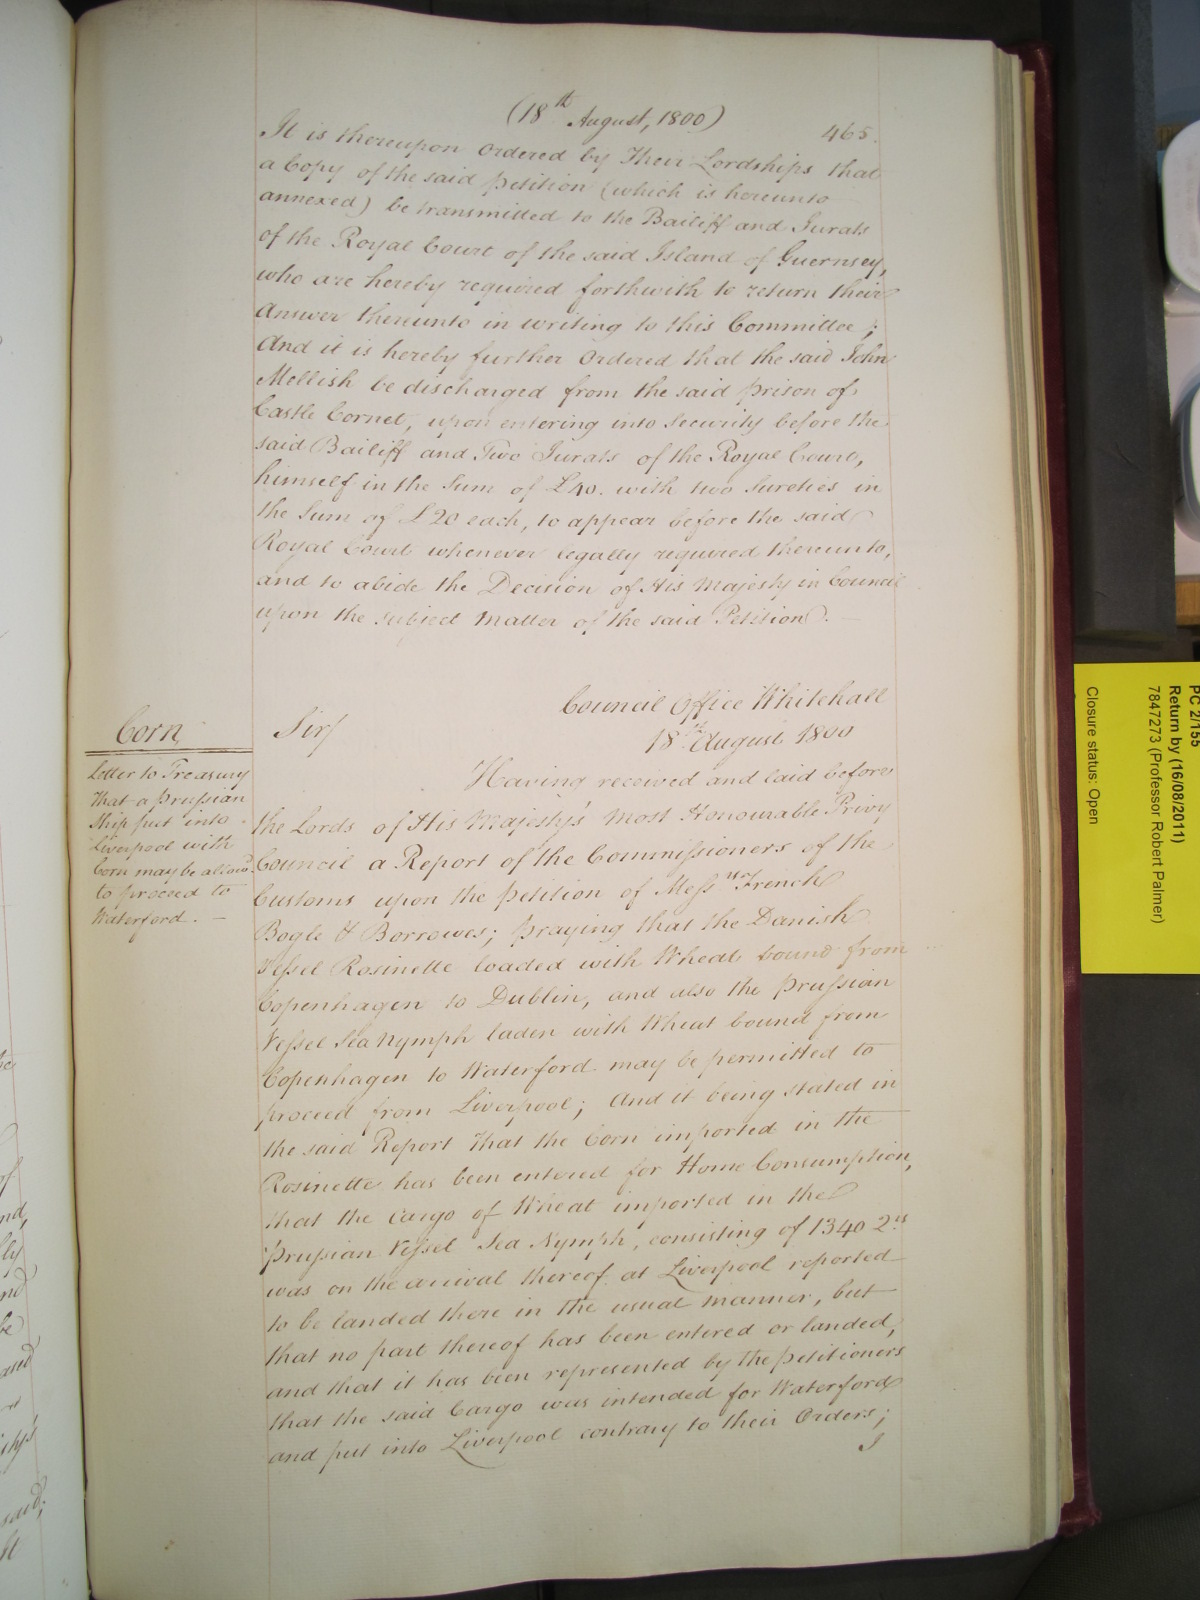 (18th August, 1800)
465.
It is thereupon Ordered by Their Lordships that
a Copy of the said petition (which is hereunto
annexed) be transmitted to the Bailiff and Jurats
of the Royal Court of the said Island of Guernsey,
who are hereby required forthwith to return their
Answer thereunto in writing to this Committee;
And it is hereby further Ordered that the said John
Mellish be discharged from the said prison of
Castle Cornet, upon entering into Security before the
said Bailiff and Two Jurats of the Royal Court,
himself in the Sum of £40. with two Sureties in
the Sum of £20 each, to appear before the said
Royal Court whenever legally required thereunto,
and to abide the Decision of His Majesty in Council
upon the subject Matter of the said Petition. —
Council Office Whitehall
18th August 1800
Corn
Letter to Treasury
That a Prussian
Ship put into
Liverpool with
Corn may be allowd.
to proceed to
Waterford. —
Sir/
Having received and laid before
the Lords of His Majesty's Most Honourable Privy
Council a Report of the Commissioners of the
Customs upon the petition of Messrs French
Bogle & Borrowes; praying that the Danish
Vessel Rosinette loaded with Wheat bound from
Copenhagen to Dublin, and also the Prussian
Vessel Sea Nymph laden with Wheat bound from
Copenhagen to Waterford may be permitted to
proceed from Liverpool; And it being stated in
the said Report that the Corn imported in the
Rosinette has been entered for Home Consumption,
that the Cargo of Wheat imported in the
Prussian Vessel Sea Nymph, consisting of 1340 2rs
was on the arrival thereof at Liverpool reported
to be landed there in the usual manner, but
that no part thereof has been entered or landed,
and that it has been represented by the petitioners
that the said Cargo was intended for Waterford
and put into Liverpool contrary to their Orders;
I
PC 2/155
Return by (16/08/2011)
7847273 (Professor Robert Palmer)
Closure status: Open